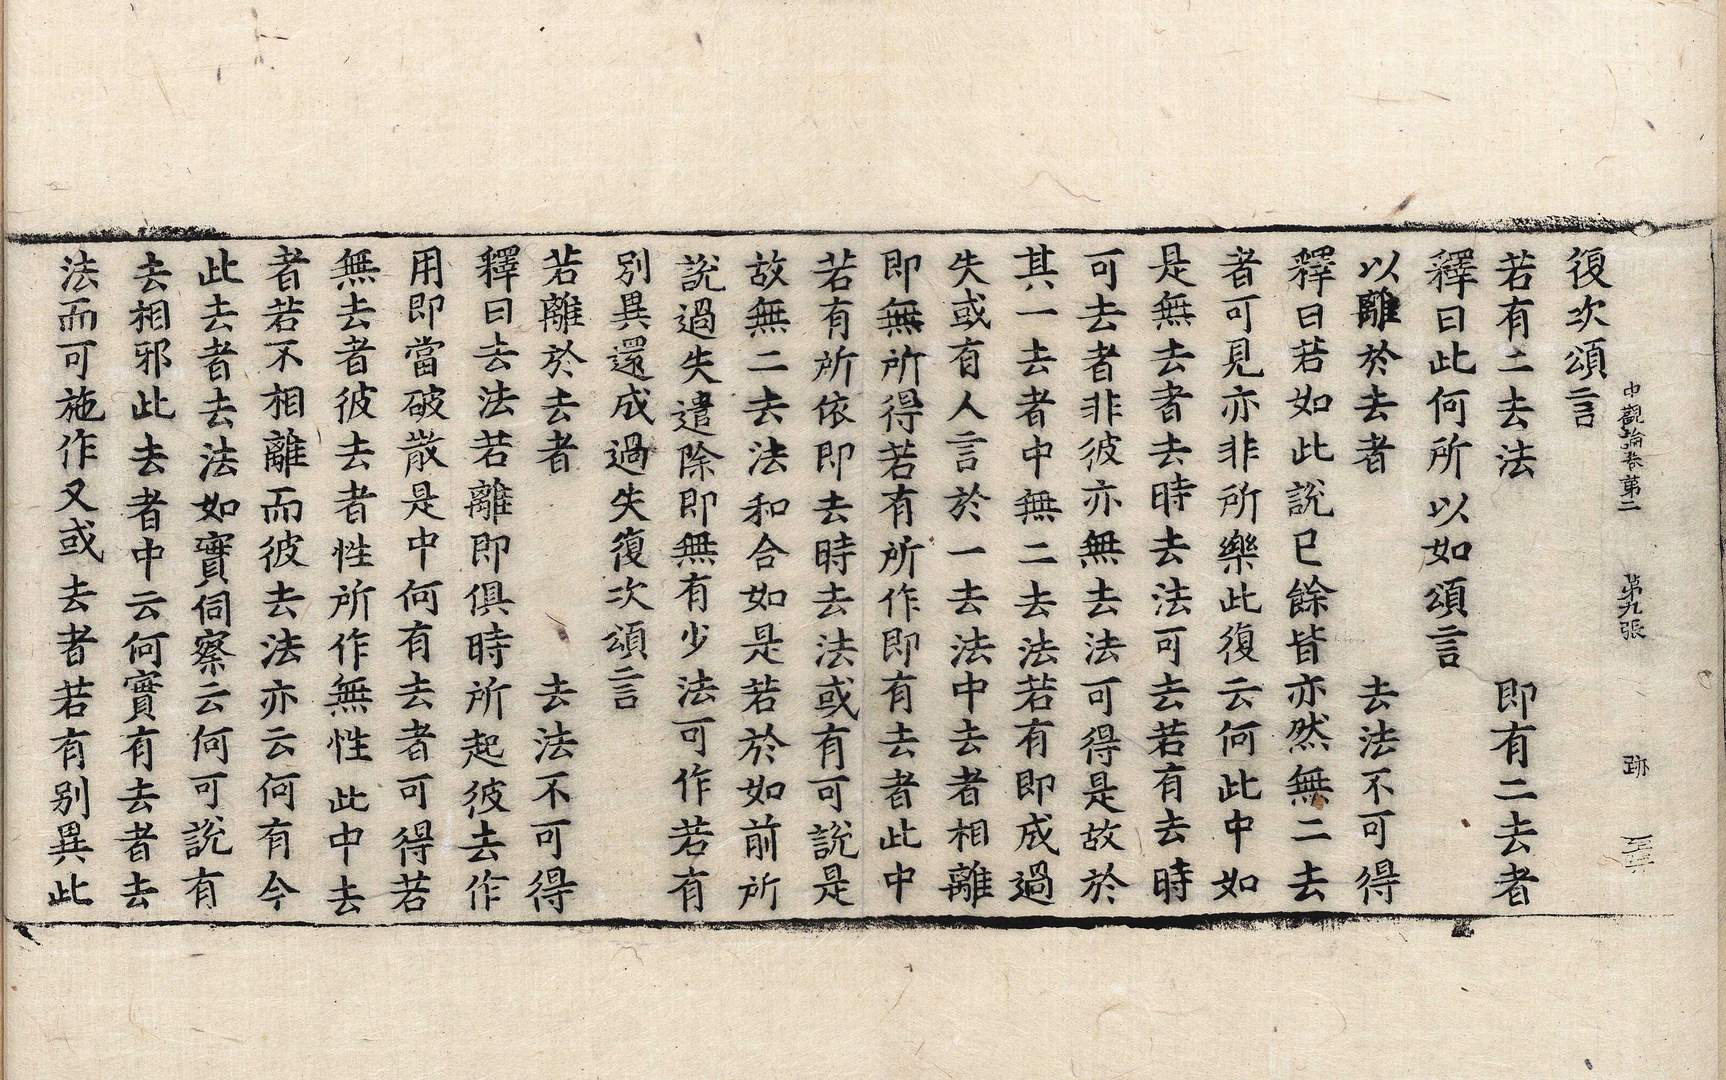 中觀論卷第二　第九張　跡
復次頌言
若有二去法　即有二去者
釋曰此何所以如頌言
以離於去者　去法不可得
釋曰若如此說已餘皆亦然無二去
者可見亦非所樂此復云何此中如
是無去者去時去法可去若有去時
可去者非彼亦無去法可得是故於
其一去者中無二去法若有即成過
失或有人言於一去法中去者相離
即無所得若有所作即有去者此中
若有所依即去時去法或有可說是
故無二去法和合如是若於如前所
說過失遣除即無有少法可作若有
別異還成過失復次頌言
若離於去者　去法不可得
釋曰去法若離即俱時所起彼去作
用即當破散是中何有去者可得若
無去者彼去者性所作無性此中去
者若不相離而彼去法亦云何有今
此去者去法如實伺察云何可說有
去相邪此去者中云何實有去者去
法而可施作又或去者若有別異此